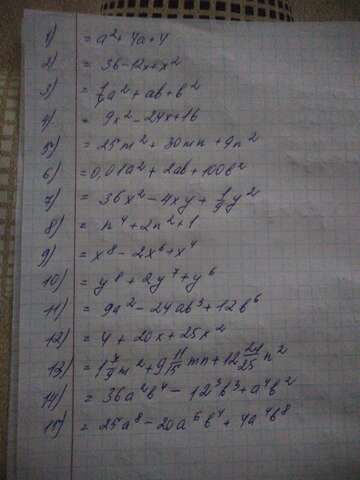 1) = a² + 4a + 4
2) = 36 - 12x + x²
3) = ¼a² + ab + b²
4) = 9x² - 24x + 16
5) = 25m² + 30mn + 9n²
6) = 0,01a² + 2ab + 100b²
7) = 36x² - 4xy + 1/9 y²
8) = n⁴ + 2n² + 1
9) = x⁸ - 2x⁶ + x⁴
10) = y⁸ + 2y⁷ + y⁶
11) = 9a² - 24ab³ + 12b⁶
12) = 4 + 20x + 25x²
13) = 1 7/9 m² + 9 11/15 mn + 12 21/25 n²
14) = 36a²b⁴ - 12³b³ + a⁴b²
15) = 25a⁸ - 20a⁶b⁴ + 4a⁴b⁸